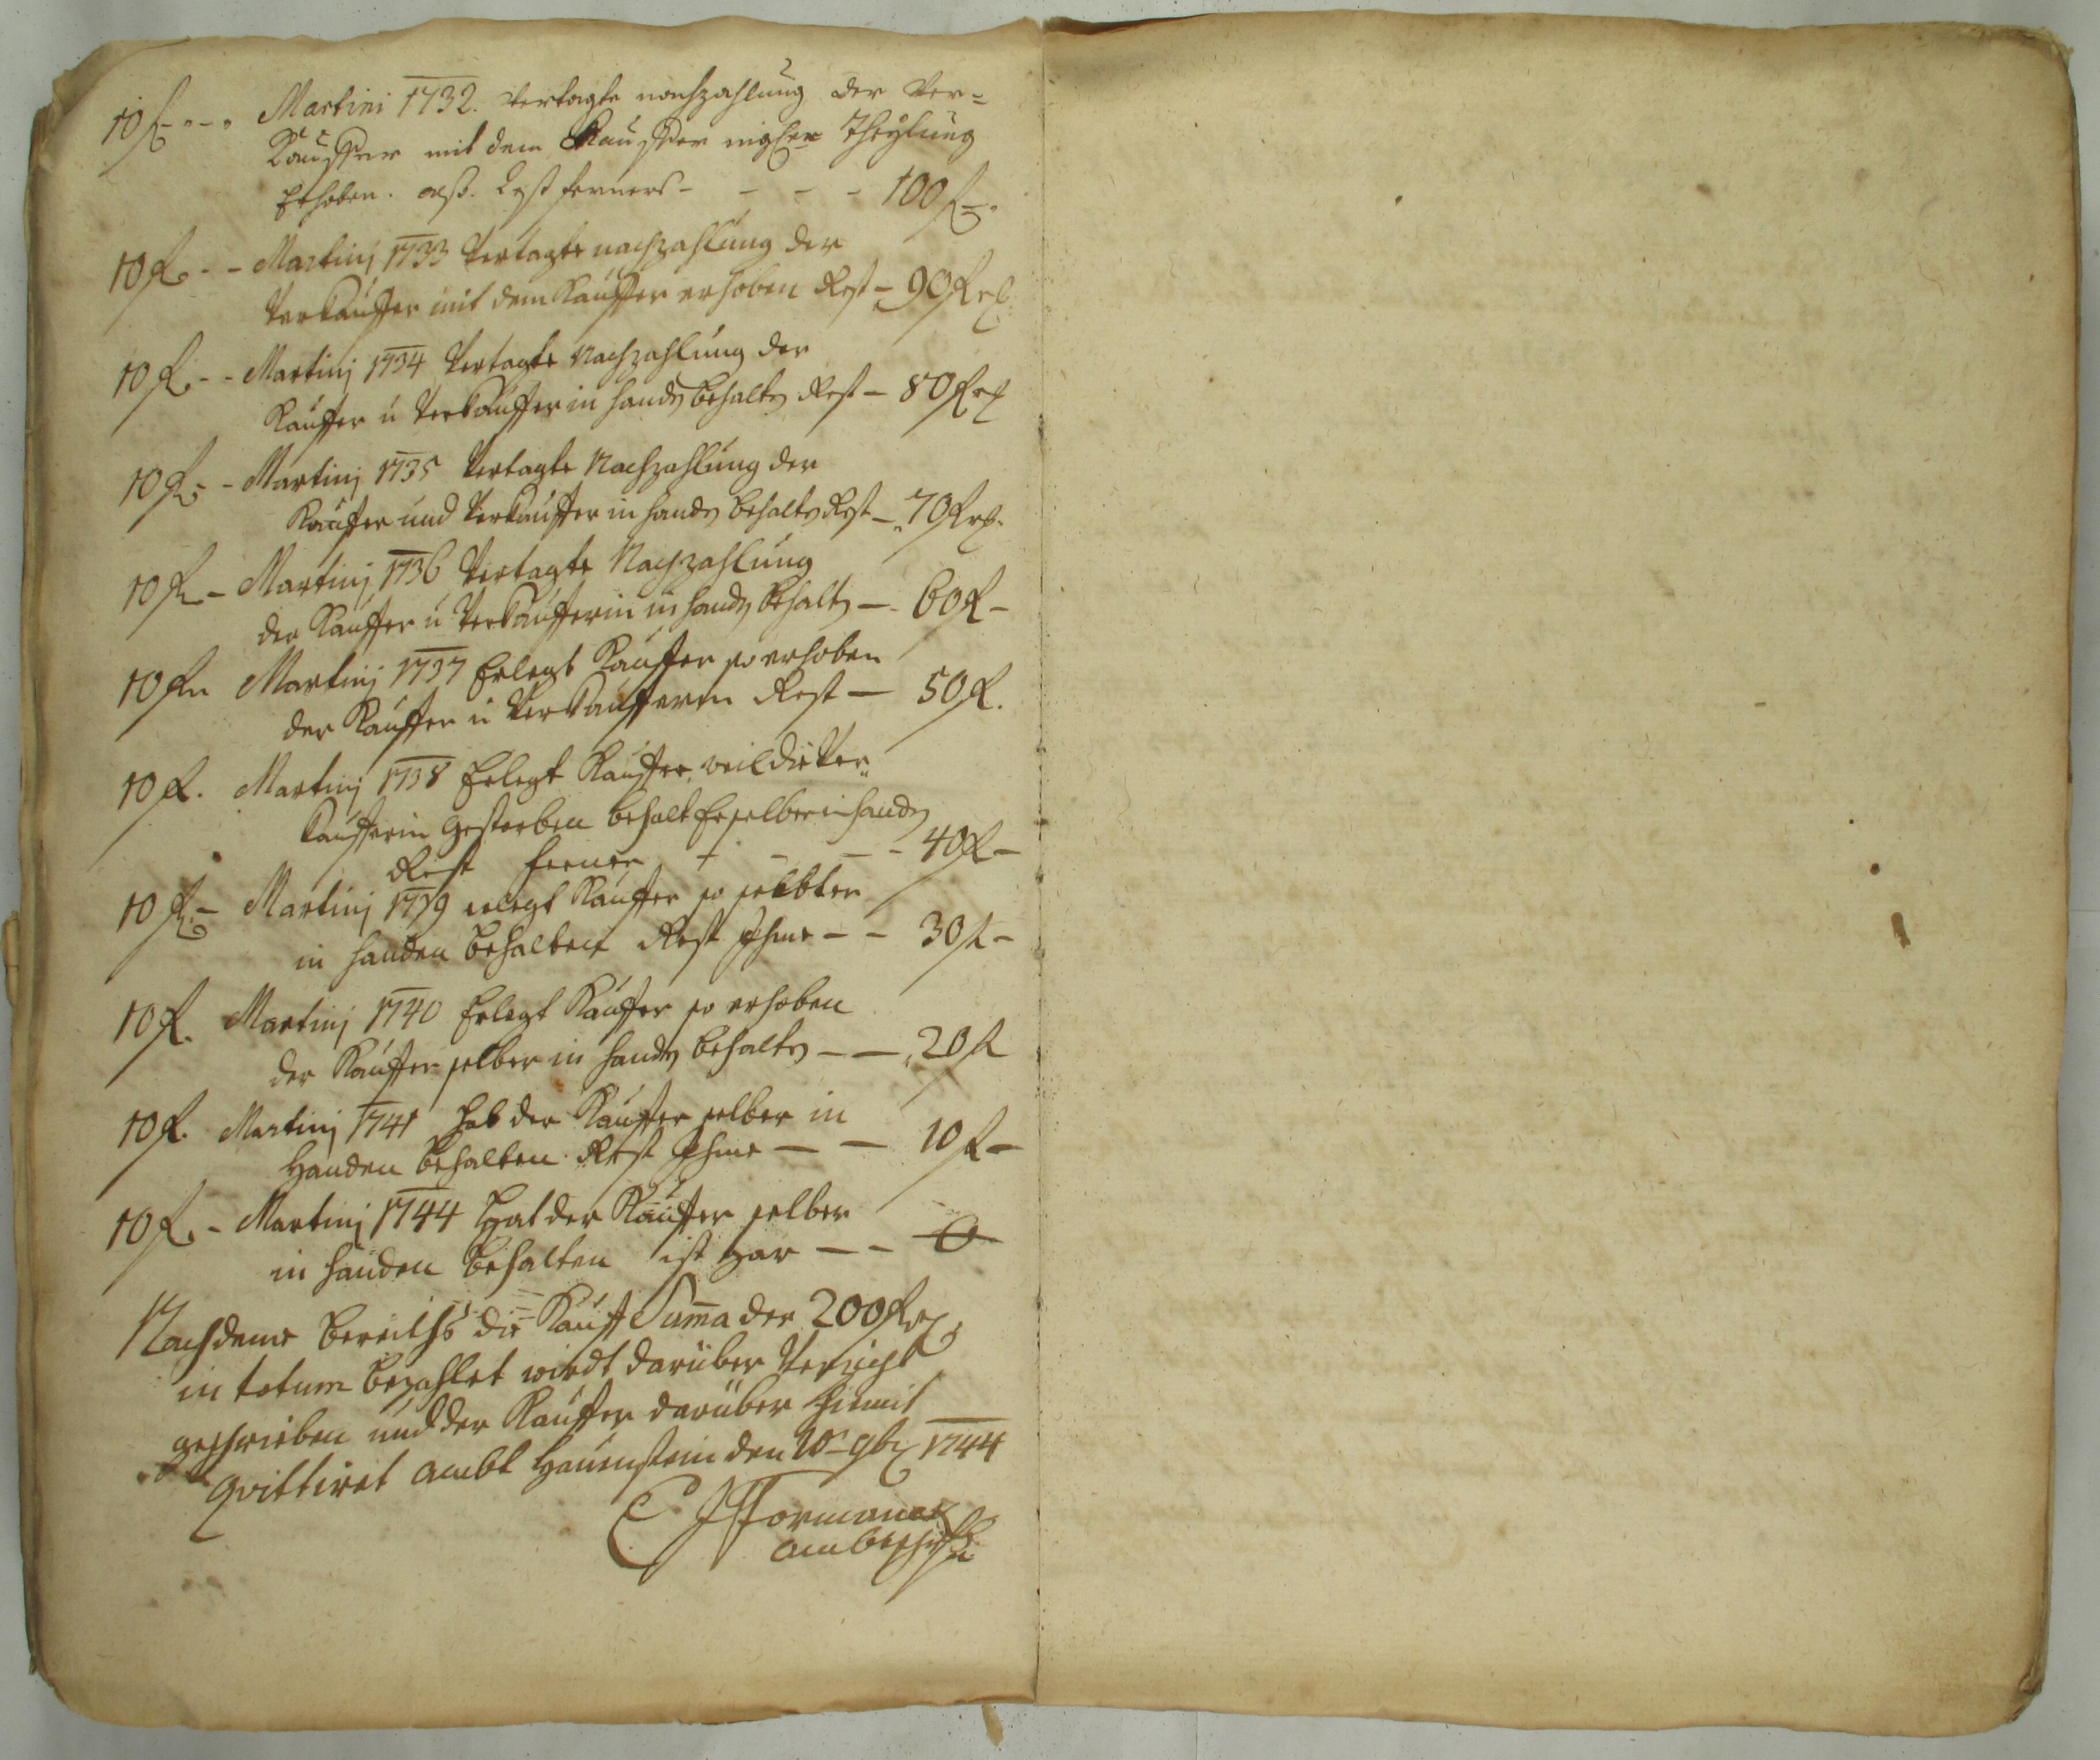 10 f - - - Martini 1732. Vertagte nachzahlung der Ver=
Kauffer mit dem Kauffer Theylung
Erhoben. Rest ferners - - - - 100 f -
10 f. - - Martinj 1733 Vertagte nachzahlung der
Verkauffer mit dem Kauffer erhoben Rest - 90 f
10 f. - - Martinj 1734 Vertagte Nachzahlung der
Kauffer u Verkauffer in handen behalten Rest - 80 f
10 f. - - Martinj 1735 Vertagte Nachzahlung der
Kauffer und Verkauffer in handen behalten Rest - 70 f
10 f. - Martinj 1736 Vertagte Nachzahlung
der Kauffer u Verkaufferin in handen behalten - - 60 f -
10 f Martinj 1737 Erlegt Kauffer so erhoben
der Kauffer u Verkaufferin Rest - 50 f.
10 f. Martinj 1738 Erlegt Kauffer, weil die Ver=
kaufferin gestorben behalt Er selber in handen
Rest ferner - - - - 40 f -
10 f. - Martinj 1739 erlegt Kauffer so selbter
in handen behalten Rest Ihme - - 30 f -
10 f. Martinj 1740 Erlegt Kauffer so erhoben
der Kauffer selber in handen behalten - - 20 f
10 f. Martinj 1741 hat der Kauffer selber in
Handen behalten Rest Ihme - - 10 f -
10 f. - Martinj 1744 Hat der Kauffer selber
in handen behalten ist gar - - 0
Nachdeme bereiths die Kauff Suma der 200 f
in totum bezahlet wirdt darüber Verzicht
geschrieben und der Kauffer darüber hiemit
quittiret Ambt Hauenstein den 9br 1744